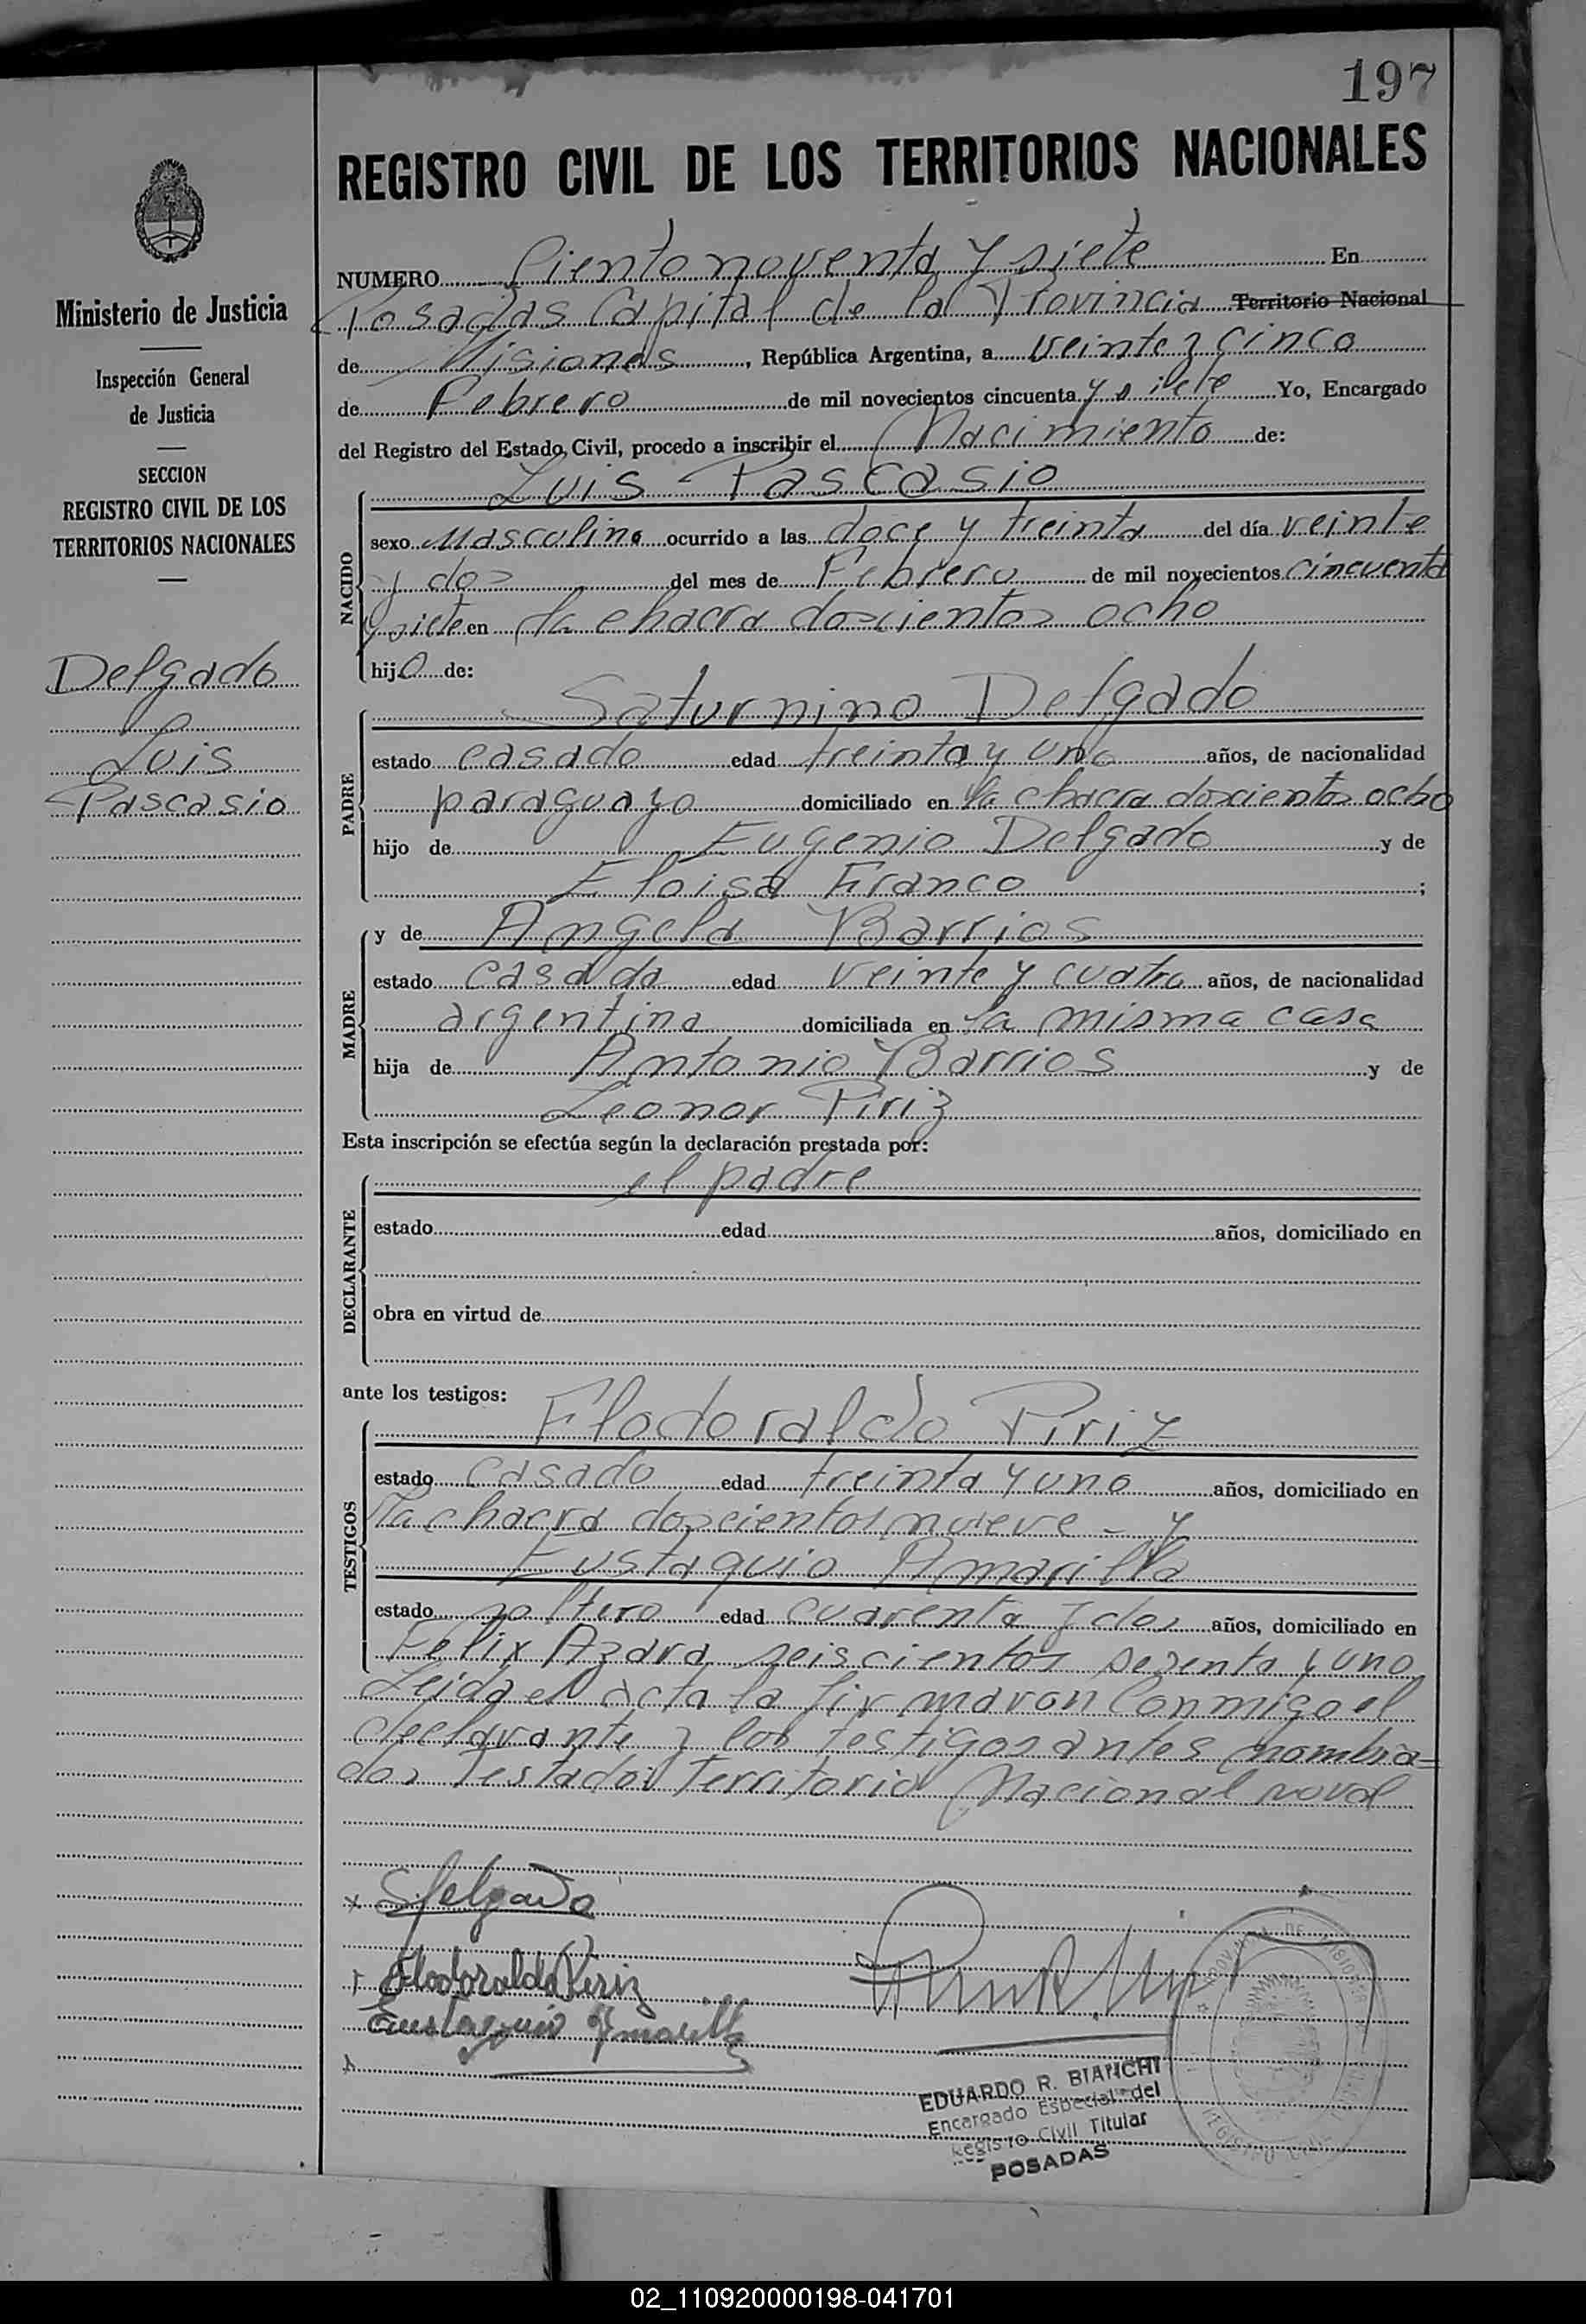 197
REGISTRO CIVIL DE LOS TERRITORIOS NACIONALES
NUMERO Ciento noventa y siete En
Posadas Capital de la Provincia Territorio Nacional
de Misiones, República Argentina, a veinte y cinco
de Febrero de mil novecientos cincuenta y siete Yo, Encargado
del Registro del Estado Civil, procedo a inscribir el Nacimiento de:
Ministerio de Justicia
Inspección General
de Justicia
SECCION
REGISTRO CIVIL DE LOS
TERRITORIOS NACIONALES
Delgado
Luis
Pascasio
NACIDO
Luis Pascasio
sexo Masculino ocurrido a las doce y treinta del día veinte
y dos del mes de Febrero de mil novecientos cincuenta
y siete en la chacra doscientos ocho
hijo de:
PADRE
Saturnino Delgado
estado casado edad treinta y uno años, de nacionalidad
paraguayo domiciliado en la chacra doscientos ocho
hijo de Eugenio Delgado y de
Eloisa Franco ;
MADRE
y de Angela Barrios
estado casada edad veinte y cuatro años, de nacionalidad
argentina domiciliada en la misma casa
hija de Antonio Barrios y de
Leonor Piriz
Esta inscripción se efectúa según la declaración prestada por:
DECLARANTE
el padre
estado edad años, domiciliado en
obra en virtud de
ante los testigos:
TESTIGOS
Flodoraldo Piriz
estado casado edad treinta y uno años, domiciliado en
la chacra doscientos nueve - y
Eustaquio Amarilla
estado soltero edad cuarenta y dos años, domiciliado en
Felix Azara seiscientos sesenta y uno
Leida el acta la firmaron conmigo el
declarante y los testigos antes nombra=
dos Testado: Territorio Nacional no val
SDelgado
Flodoraldo Piriz
Eustaquio Amarilla
EDUARDO R. BIANCHI
Encargado Especial del
Registro Civil Titular
POSADAS
02_110920000198-041701